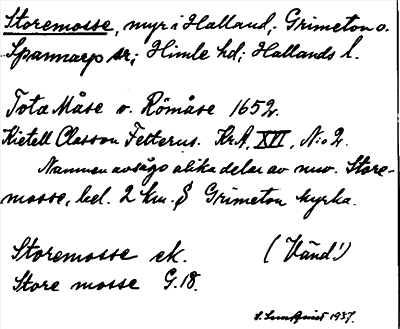 Storemosse, myr i Halland; Grimeton o.
Spannarp sr; Himle hd; Hallands l.
Tota Måse o. Römåse 1652.
Kietell Classon Felterus. Kr.A, XVI, N:o 2.
Namnen avsågo olika delar av nuv. Store-
mosse, bel. 2 km. S Grimeton kyrka.
Storemosse ek. (Vänd!)
Store mosse G.18.
S. 1937.